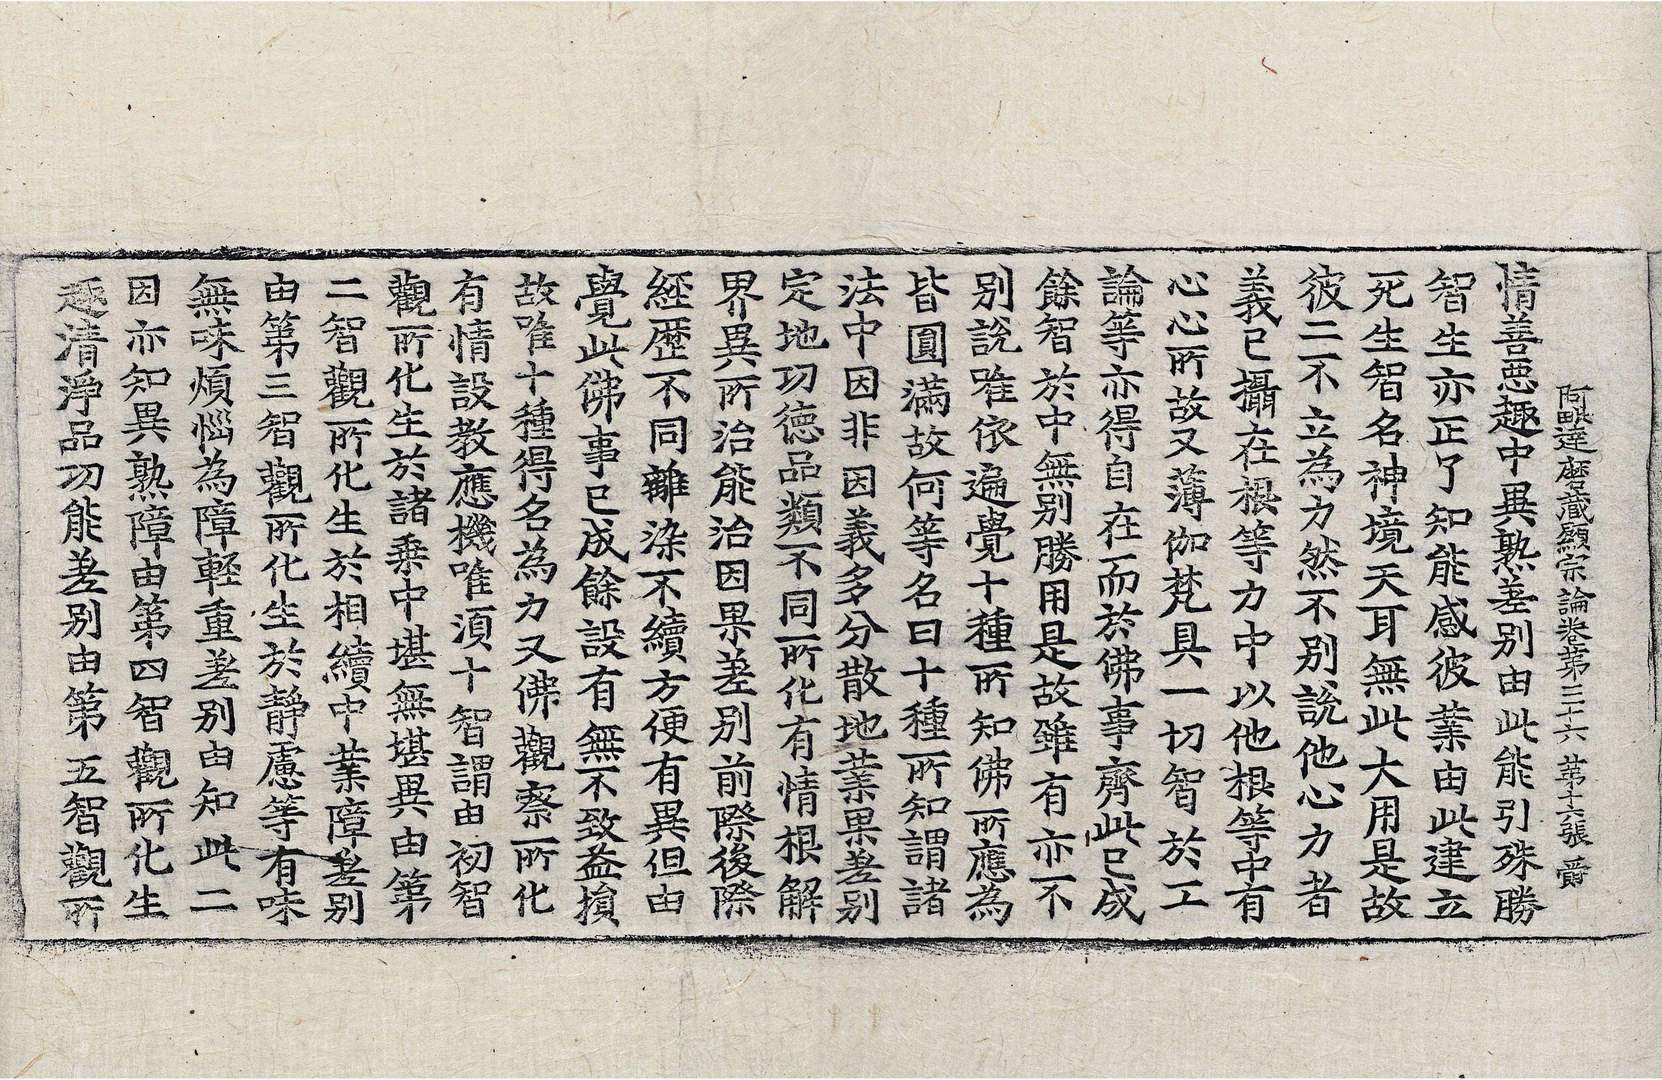 阿毗達磨藏顯宗論卷第三十六 第十六張 爵
情善惡趣中異熟差別由此能引殊勝
智生亦正了知能感彼業由此建立
死生智名神境天耳無此大用是故
彼二不立為力然不別說他心力者
義已攝在根等力中以他根等中有
心心所故又薄伽梵具一切智於工
論等亦得自在而於佛事齊此已成
餘智於中無別勝用是故雖有亦不
別說唯依遍覺十種所知佛所應為
皆圓滿故何等名曰十種所知謂諸
法中因非因義多分散地業果差別
定地功德品類不同所化有情根解
界異所治能治因果差別前際後際
經歷不同離染不續方便有異但由
覺此佛事已成餘設有無不致益損
故唯十種得名為力又佛觀察所化
有情設教應機唯須十智謂由初智
觀所化生於諸乘中堪無堪異由第
二智觀所化生於相續中業障差別
由第三智觀所化生於靜慮等有味
無味煩惱為障輕重差別由知此二
因亦知異熟障由第四智觀所化生
趣清淨品功能差別由第五智觀所